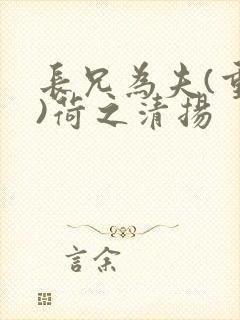 長兄為夫(重
)荷之清揚
言余